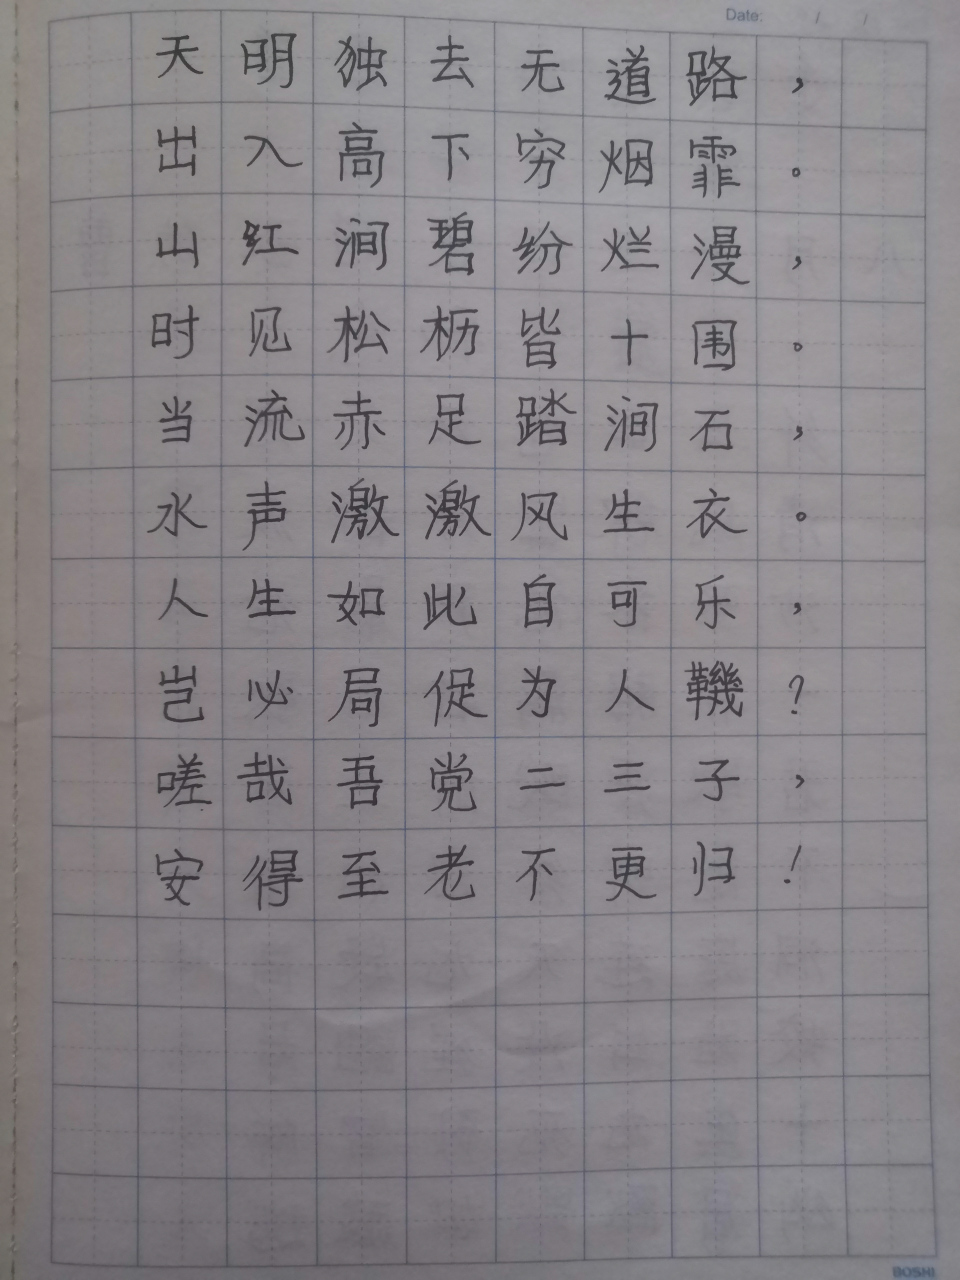 Date: / /
天明独去无道路，
出入高下穷烟霏。
山红涧碧纷烂漫，
时见松枥皆十围。
当流赤足踏涧石，
水声激激风生衣。
人生如此自可乐，
岂必局促为人鞿？
嗟哉吾党二三子，
安得至老不更归！
BOSHI